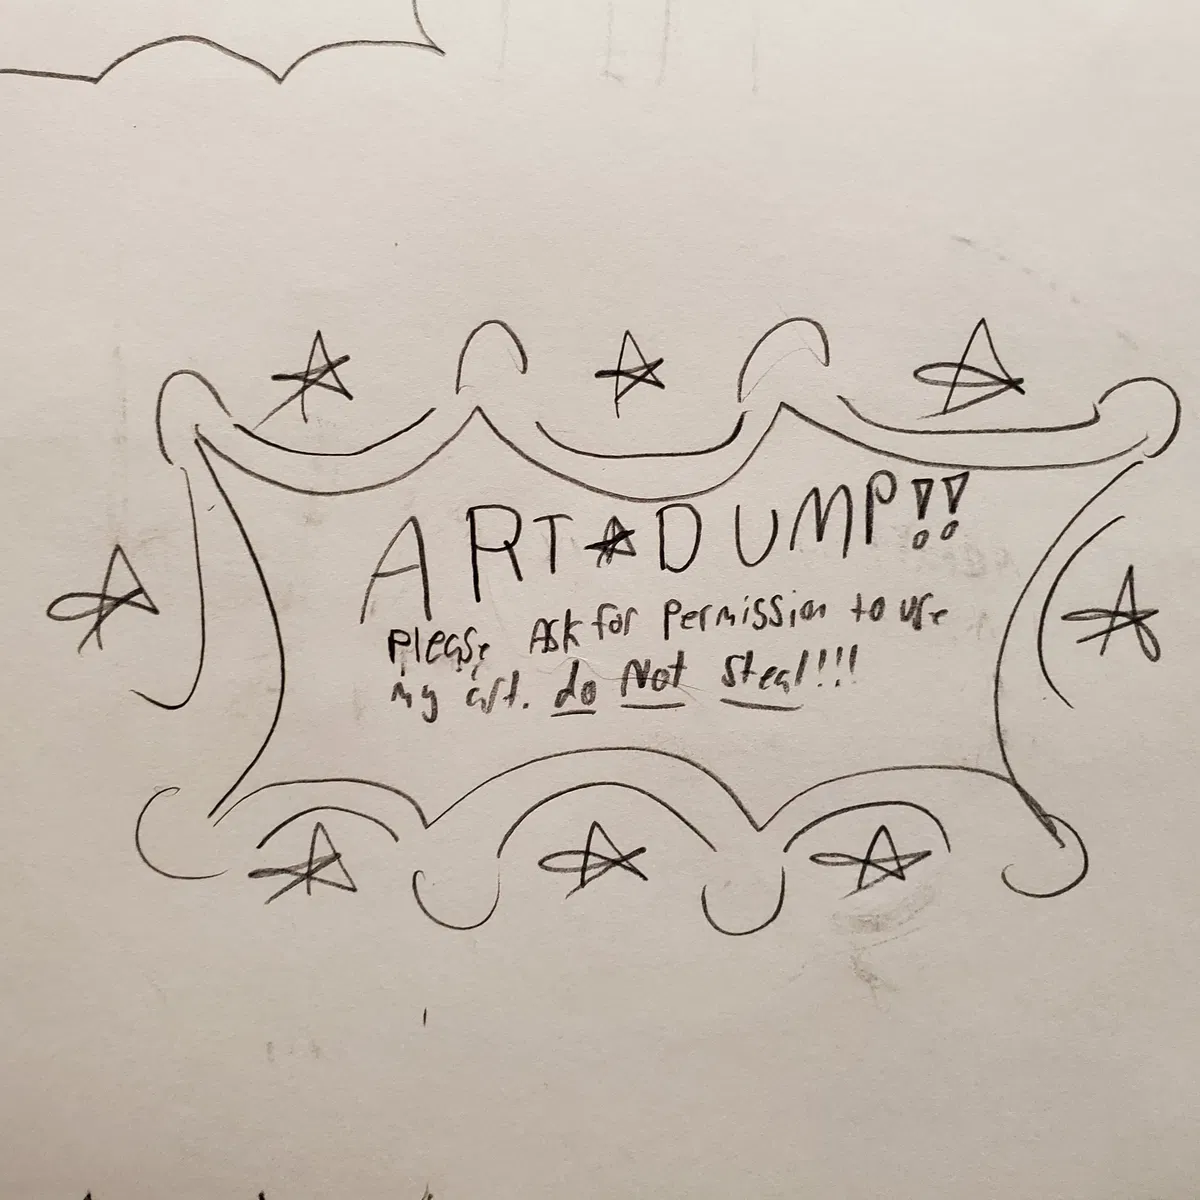 ART☆DUMP!!
Please Ask for Permission to use
my art. do Not Steal!!!